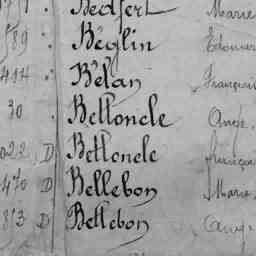 Bedfert Marie
589 Béglin Edouar
414 Bélan François
30 Belloncle Ange
022 D Belloncle françoi
470 D Bellebon Marie
813 D Bellebon